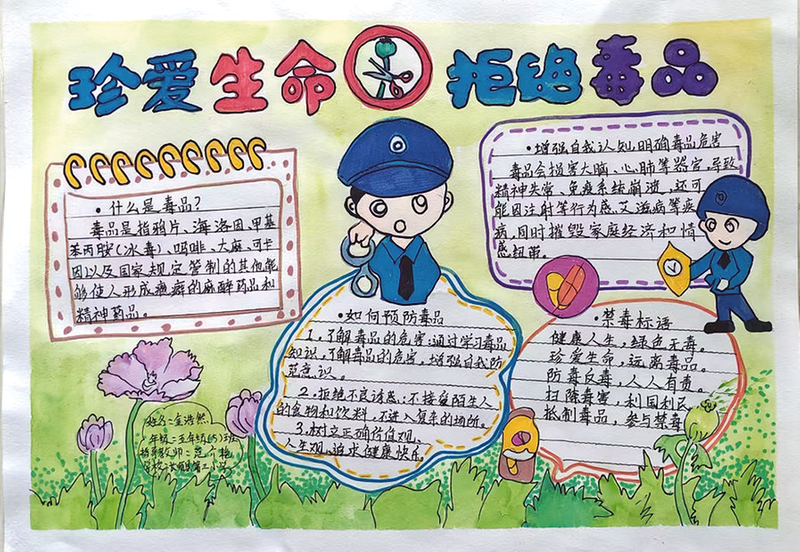 珍爱生命 拒绝毒品
·什么是毒品?
毒品是指鸦片、海洛因、甲基
苯丙胺(冰毒)、吗啡、大麻、可卡
因以及国家规定管制的其他能
够使人形成瘾癖的麻醉药品和
精神药品。
·如何预防毒品
1、了解毒品的危害:通过学习毒品
知识,了解毒品的危害,增强自我防
范意识。
2、拒绝不良诱惑:不接受陌生人
的食物和饮料,不进入复杂的场所。
3、树立正确价值观、
人生观,追求健康快乐
·增强自我认知,明确毒品危害
毒品会损害大脑、心、肺等器官,导致
精神失常,免疫系统崩溃,还可
能因注射等行为感艾滋病等疾
病,同时摧毁家庭经济和情
感纽带。
·禁毒标语
健康人生,绿色无毒。
珍爱生命,远离毒品。
防毒反毒,人人有责。
扫除毒害,利国利民
抵制毒品,参与禁毒
姓名:金浩然
年级:五年级(5)班
指导教师:范
学校:第二小学